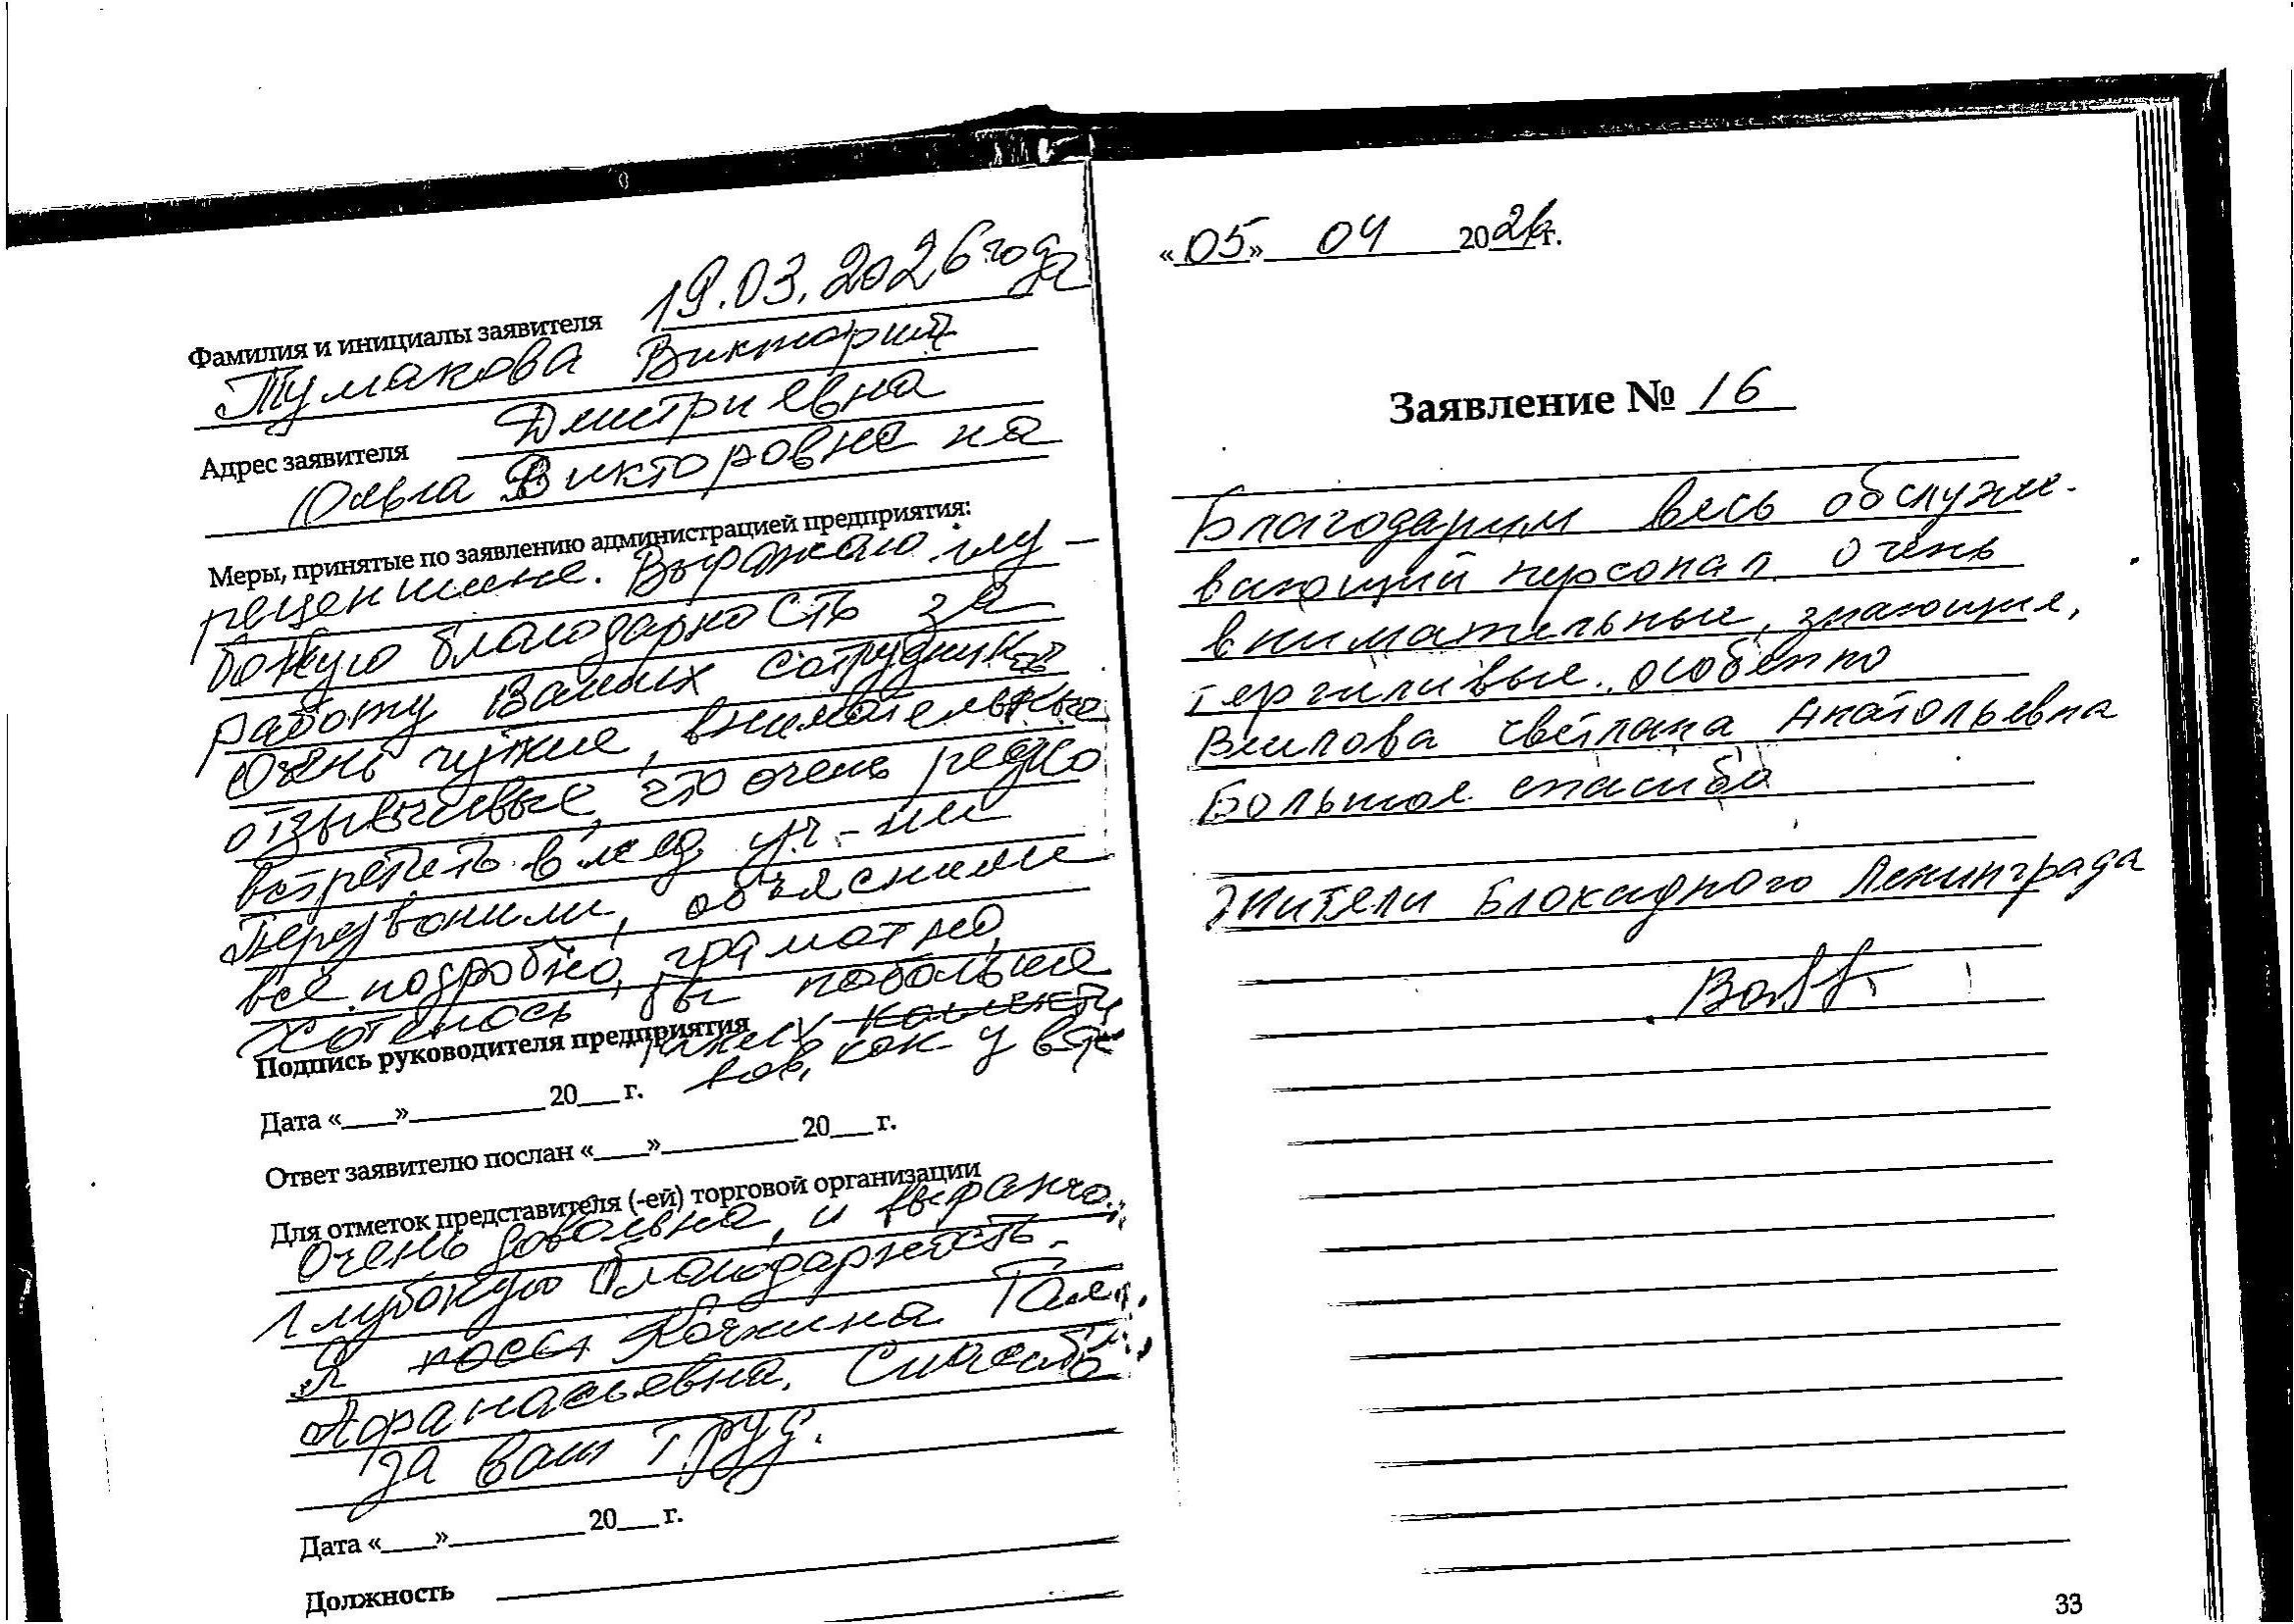 19.03.2026 года
Фамилия и инициалы заявителя
Тумакова Виктория
Дмитриевна
Адрес заявителя
Ольга Викторовна на
Меры, принятые по заявлению администрацией предприятия:
рецепшине. Выражаю глу-
бокую благодарность за
работу Ваших сотрудников
Очень чуткие, внимательные
отзывчивые, это очень редко
встретить в мед уч.-нии
Перезвонили, объяснили
всё подробно, грамотно,
Хотелось бы побольше
Подпись руководителя предприятия
таких коллекти
вов, как у вас
Дата «___»_________ 20___ г.
Ответ заявителю послан «___»_________ 20___ г.
Для отметок представителя (-ей) торговой организации
Очень довольна, и выражаю
глубокую благодарность.
Я Кочкина
Афанасьевна. Спасибо
за ваш труд.
Дата «___»_________ 20___ г.
Должность
«05» 04 2026 г.
Заявление № 16
Благодарим весь обслужи-
вающий персонал очень
внимательные, знающие,
терпиливые. особенно
Светлана Анатольевна
Большое спасибо
Жители Блокадного Ленинграда
33